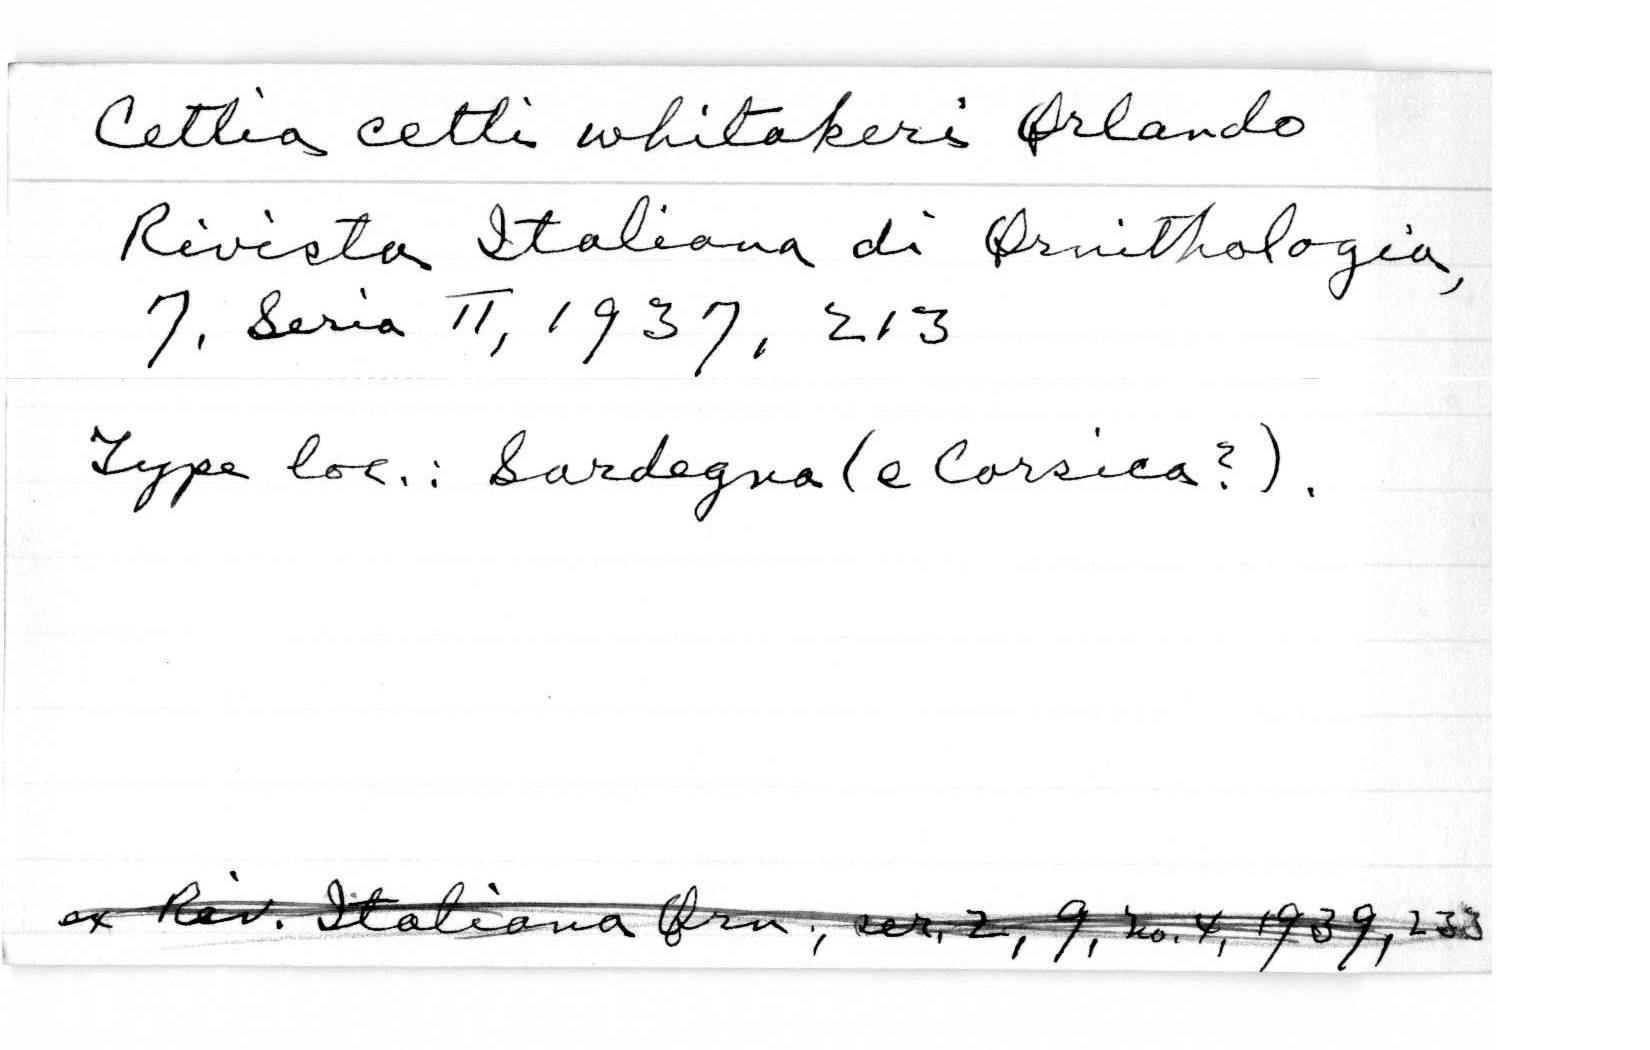 Cettia cetti whitakeri Orlando
Rivista Italiana di Ornithologia,
7, Seria II, 1937, 213
Type loc.: Sardegna (e Corsica?).
ex Riv. Italiana Orn., ser. 2, 9, no. 4, 1939, 233